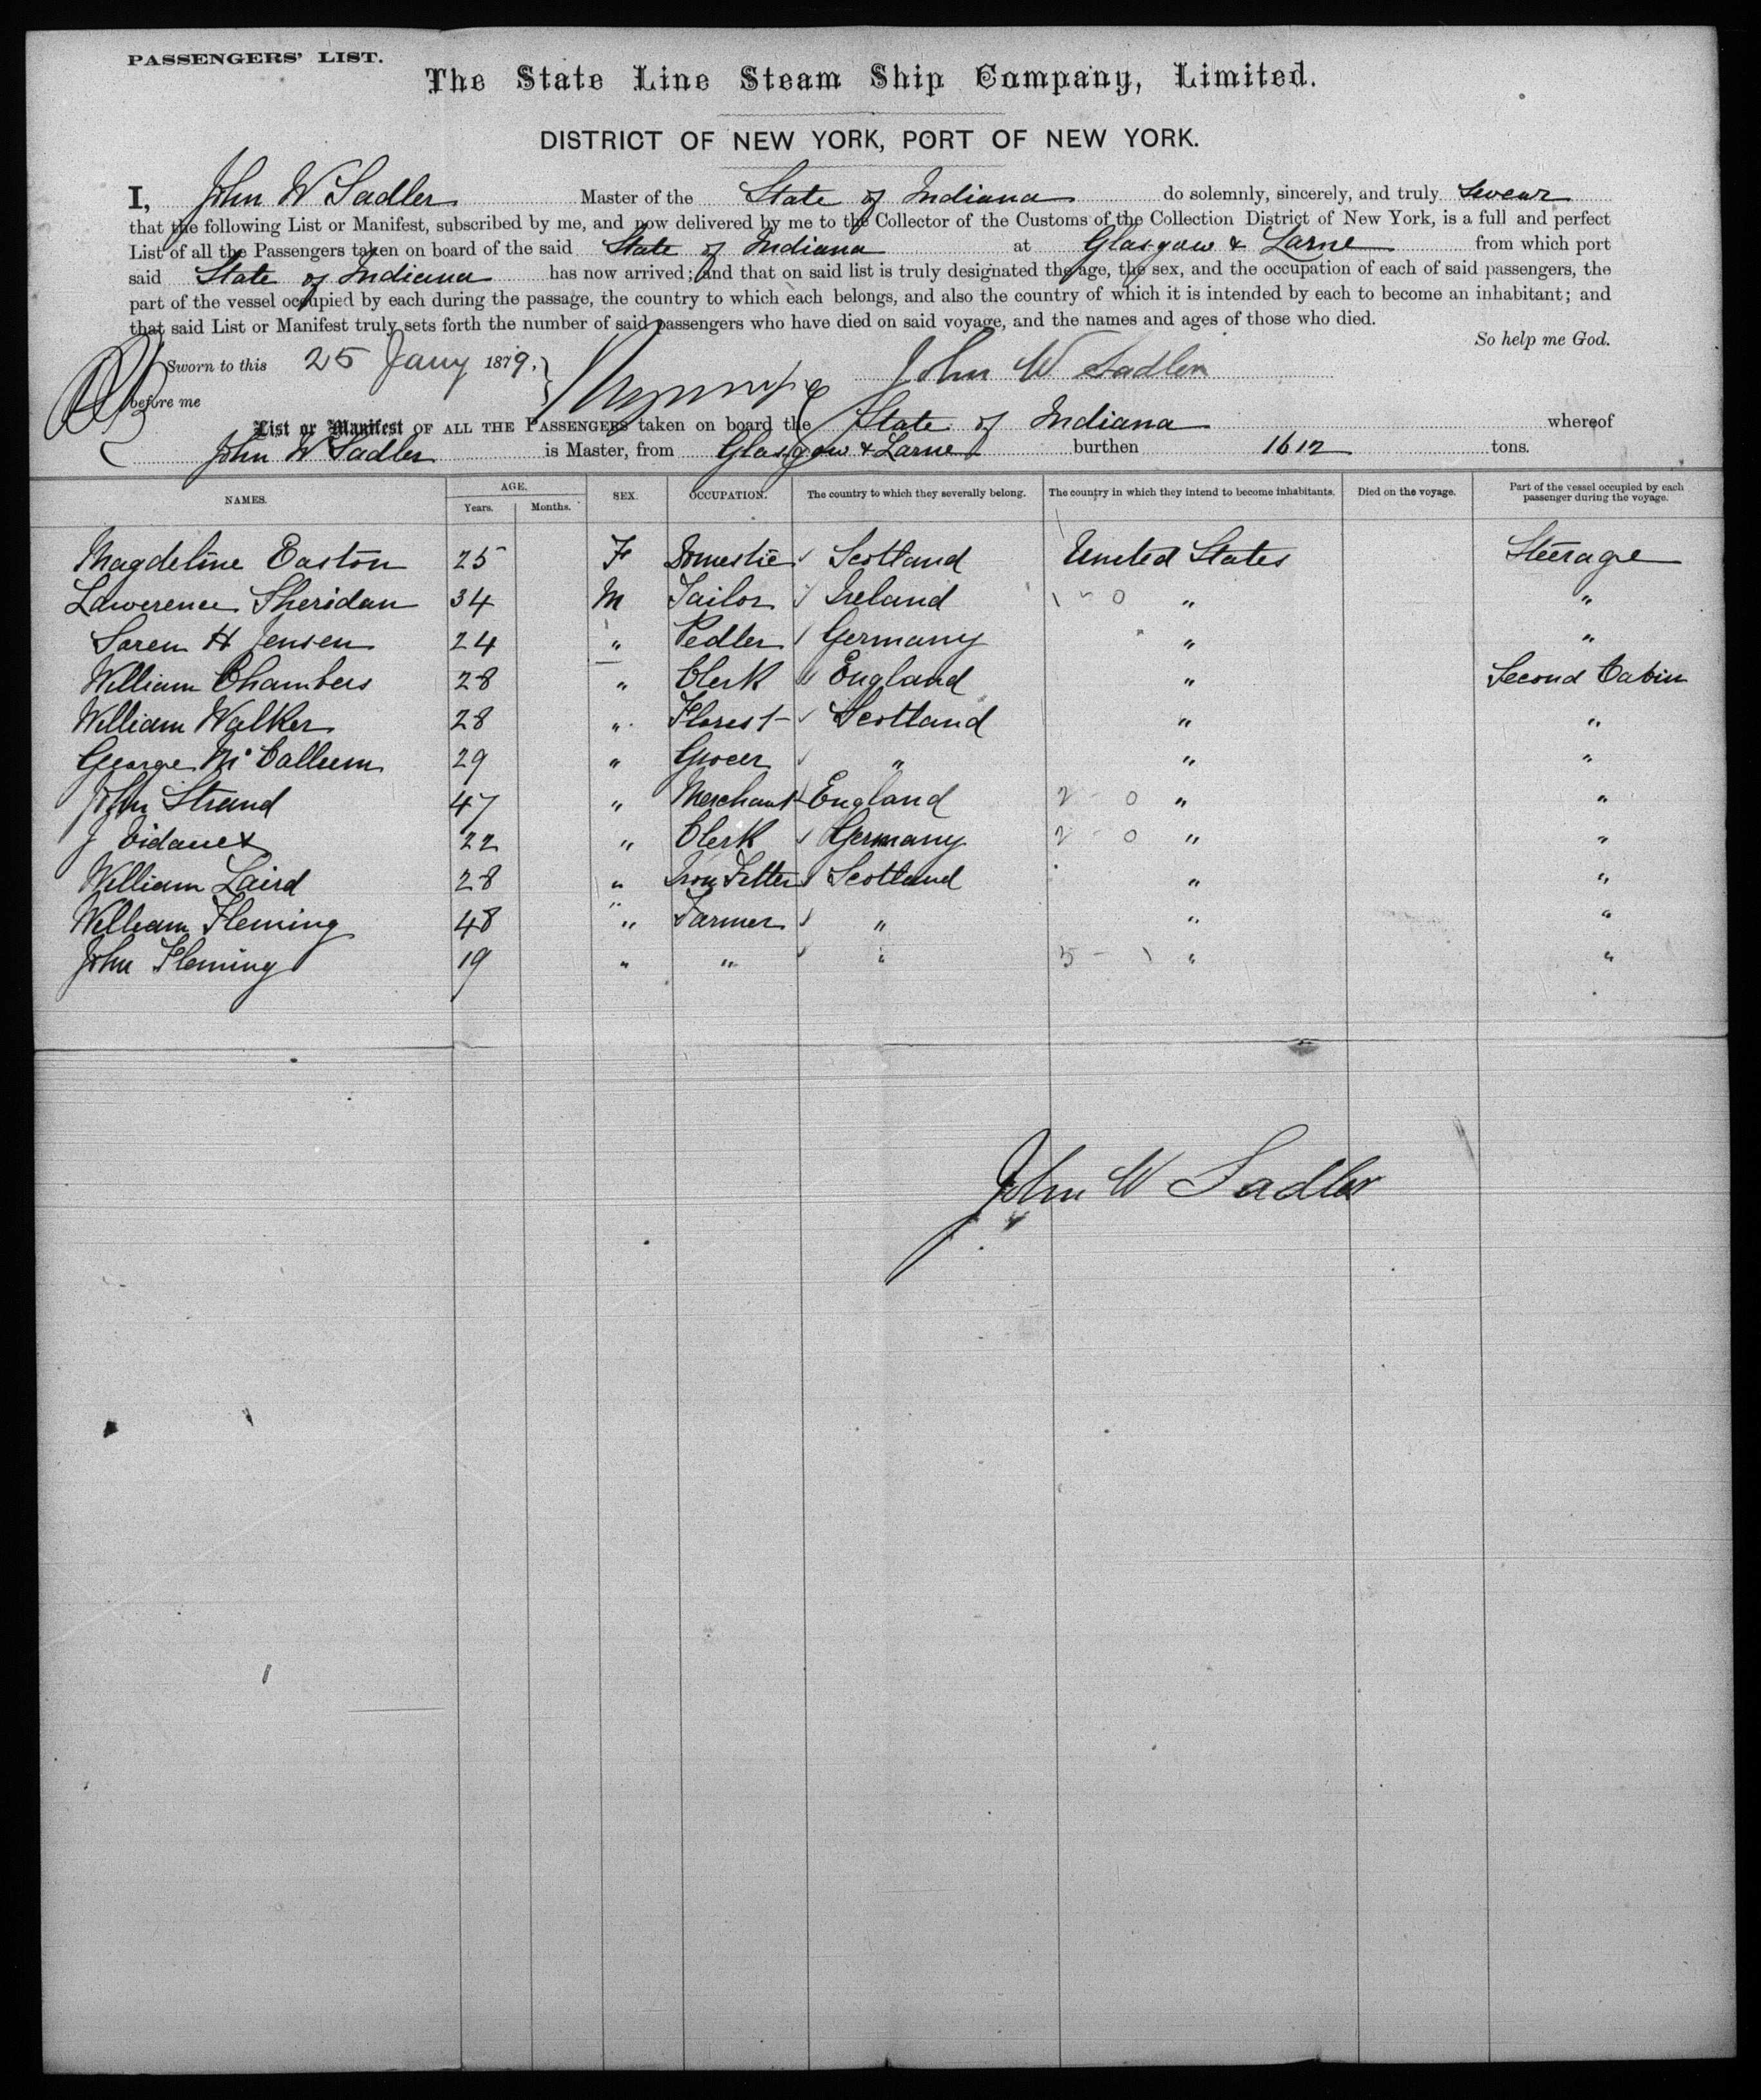 PASSENGERS' LIST.
The State Line Steam Ship Company, Limited.
DISTRICT OF NEW YORK, PORT OF NEW YORK.
I, John W Sadler Master of the State of Indiana do solemnly, sincerely, and truly swear
that the following List or Manifest, subscribed by me, and now delivered by me to the Collector of the Customs of the Collection District of New York, is a full and perfect
List of all the Passengers taken on board of the said State of Indiana at Glasgow & Larne from which port
said State of Indiana has now arrived; and that on said list is truly designated the age, the sex, and the occupation of each of said passengers, the
part of the vessel occupied by each during the passage, the country to which each belongs, and also the country of which it is intended by each to become an inhabitant; and
that said List or Manifest truly sets forth the number of said passengers who have died on said voyage, and the names and ages of those who died.
So help me God.
Sworn to this 25 Jany 1879, John W Sadler
before me
List or Manifest OF ALL THE PASSENGERS taken on board the State of Indiana whereof
John W Sadler is Master, from Glasgow & Larne burthen 1612 tons.
NAMES. AGE. Years. Months. SEX. OCCUPATION. The country to which they severally belong. The country in which they intend to become inhabitants. Died on the voyage. Part of the vessel occupied by each passenger during the voyage.
Magdeline Easton 25 F Domestic Scotland United States Steerage
Lawerence Sheridan 34 M Tailor Ireland 1 - 0 " "
Soren H Jensen 24 " Pedler Germany " "
William Chambers 28 " Clerk England " Second Cabin
William Walker 28 " Florest Scotland " "
George McCallum 29 " Grocer " " "
John Strand 47 " Merchant England 2 - 0 " "
J 22 " Clerk Germany 2 - 0 " "
William Laird 28 " Iron Fitter Scotland " "
William Fleming 48 " Farmer " " "
John Fleming 19 " " " 5 - 1 " "
John W Sadler